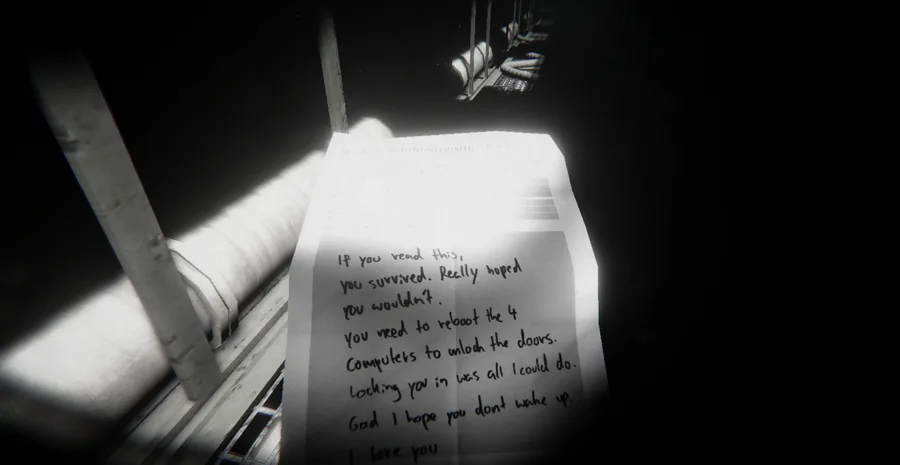 If you read this,
you survived. Really hoped
you wouldn't.
You need to reboot the 4
Computers to unlock the doors.
Locking you in was all I could do.
God I hope you dont wake up.
I love you